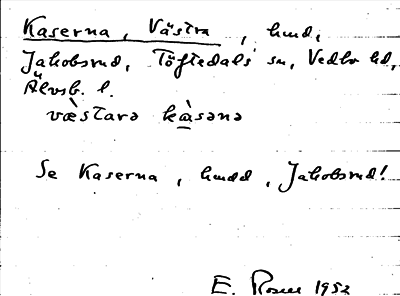 Kaserna, Västra, hmd,
Jakobsrud, Töftedals sn, Vedbo hd,
Älvsb. l.
væ̀stara kàsəna
Se Kaserna, hmdd, Jakobsrud!
E. Rosen 1952